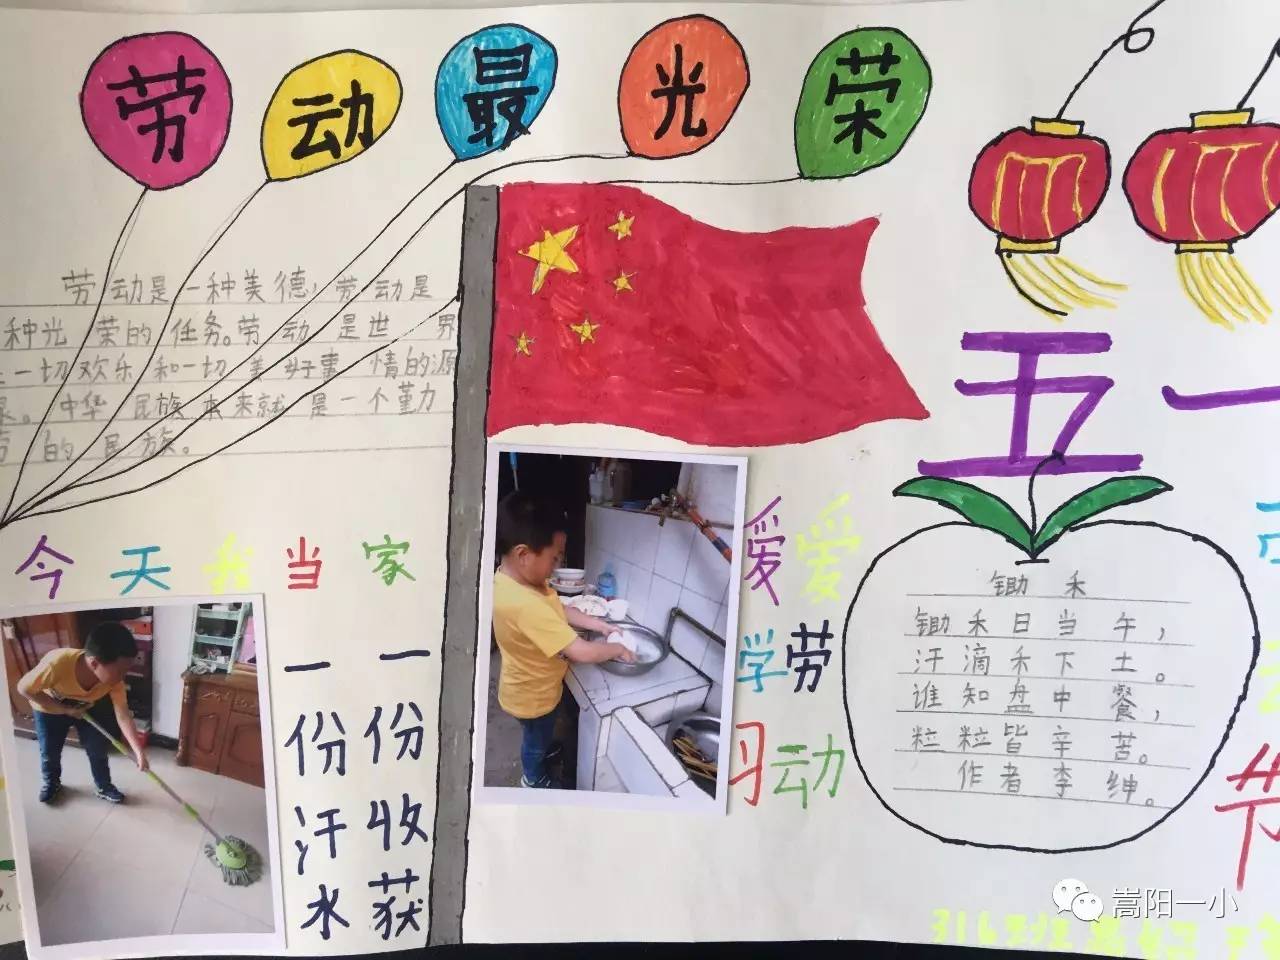 劳动最光荣
劳动是一种美德，劳动是
种光荣的任务。劳动是世界
一切欢乐和一切美好事情的源
泉。中华民族本来就是一个勤力
劳的民族。
今天我当家
一份汗水
一份收获
爱学习
爱劳动
五一
节
锄禾
锄禾日当午，
汗滴禾下土。
谁知盘中餐，
粒粒皆辛苦。
作者李绅。
316班
嵩阳一小